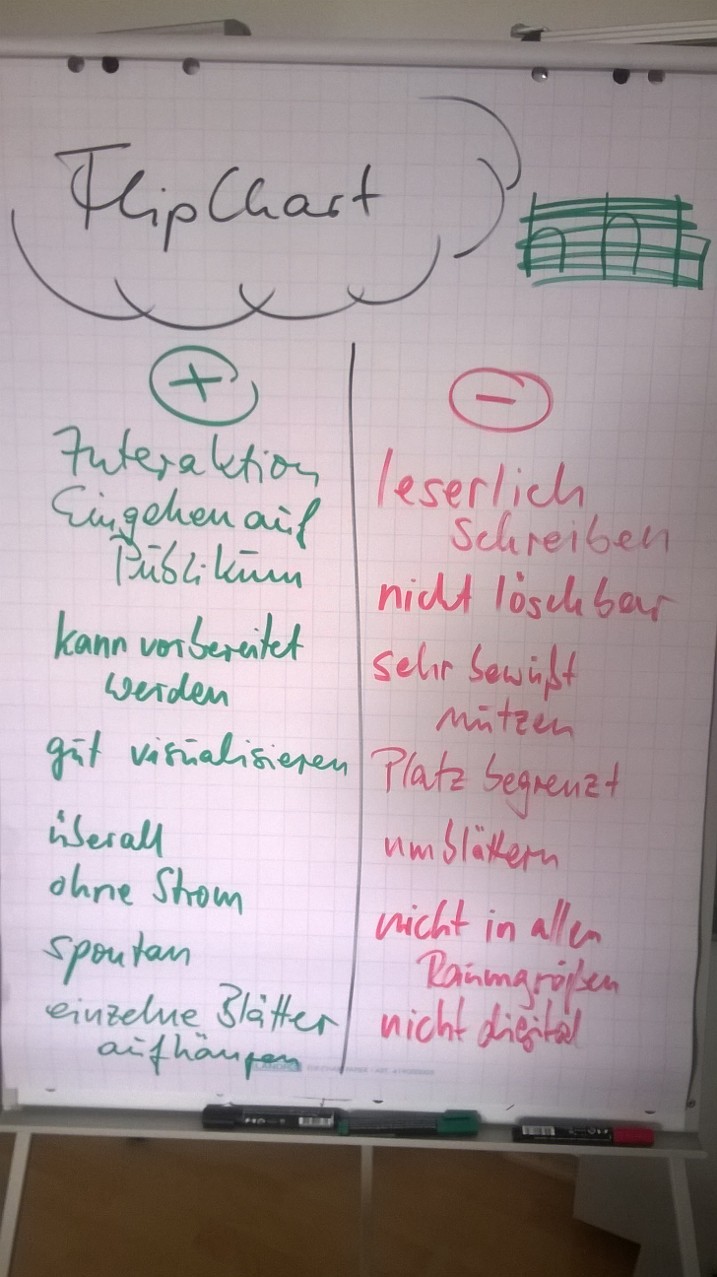 FlipChart
+
Interaktion
Eingehen auf
Publikum
kann vorbereitet
werden
gut visualisieren
überall
ohne Strom
spontan
einzelne Blätter
aufhängen
-
leserlich
schreiben
nicht löschbar
sehr bewußt
nutzen
Platz begrenzt
umblättern
nicht in allen
Raumgrößen
nicht digital